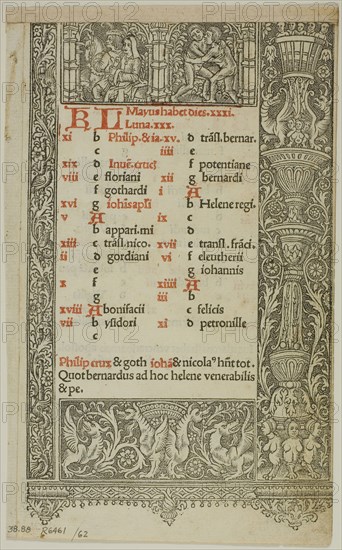 KL Mayus habet dies. xxxi.
Luna. xxx.
xi b Philip. & ia. xv. d trãsl. bernar.
c iiii e
xix d Inuẽ. cruci f potentiane
viii e floriani xii g bernardi
f gothardi i A
xvi g iohãis apľi b Helene regi.
v A ix c
b appari. mi d
xiii c trãsl. nico. xvii e transl. frãci.
ii d gordiani vi f eleutherii
e g iohannis
x f xiiii A
g iii b
xviii A bonifacii c felicis
vii b ysidori xi d petronille
c
Philip crux & goth iohã & nicolaꝰ hñt tot.
Quot bernardus ad hoc helene venerabilis
& pe.
38.98 R6461 /62